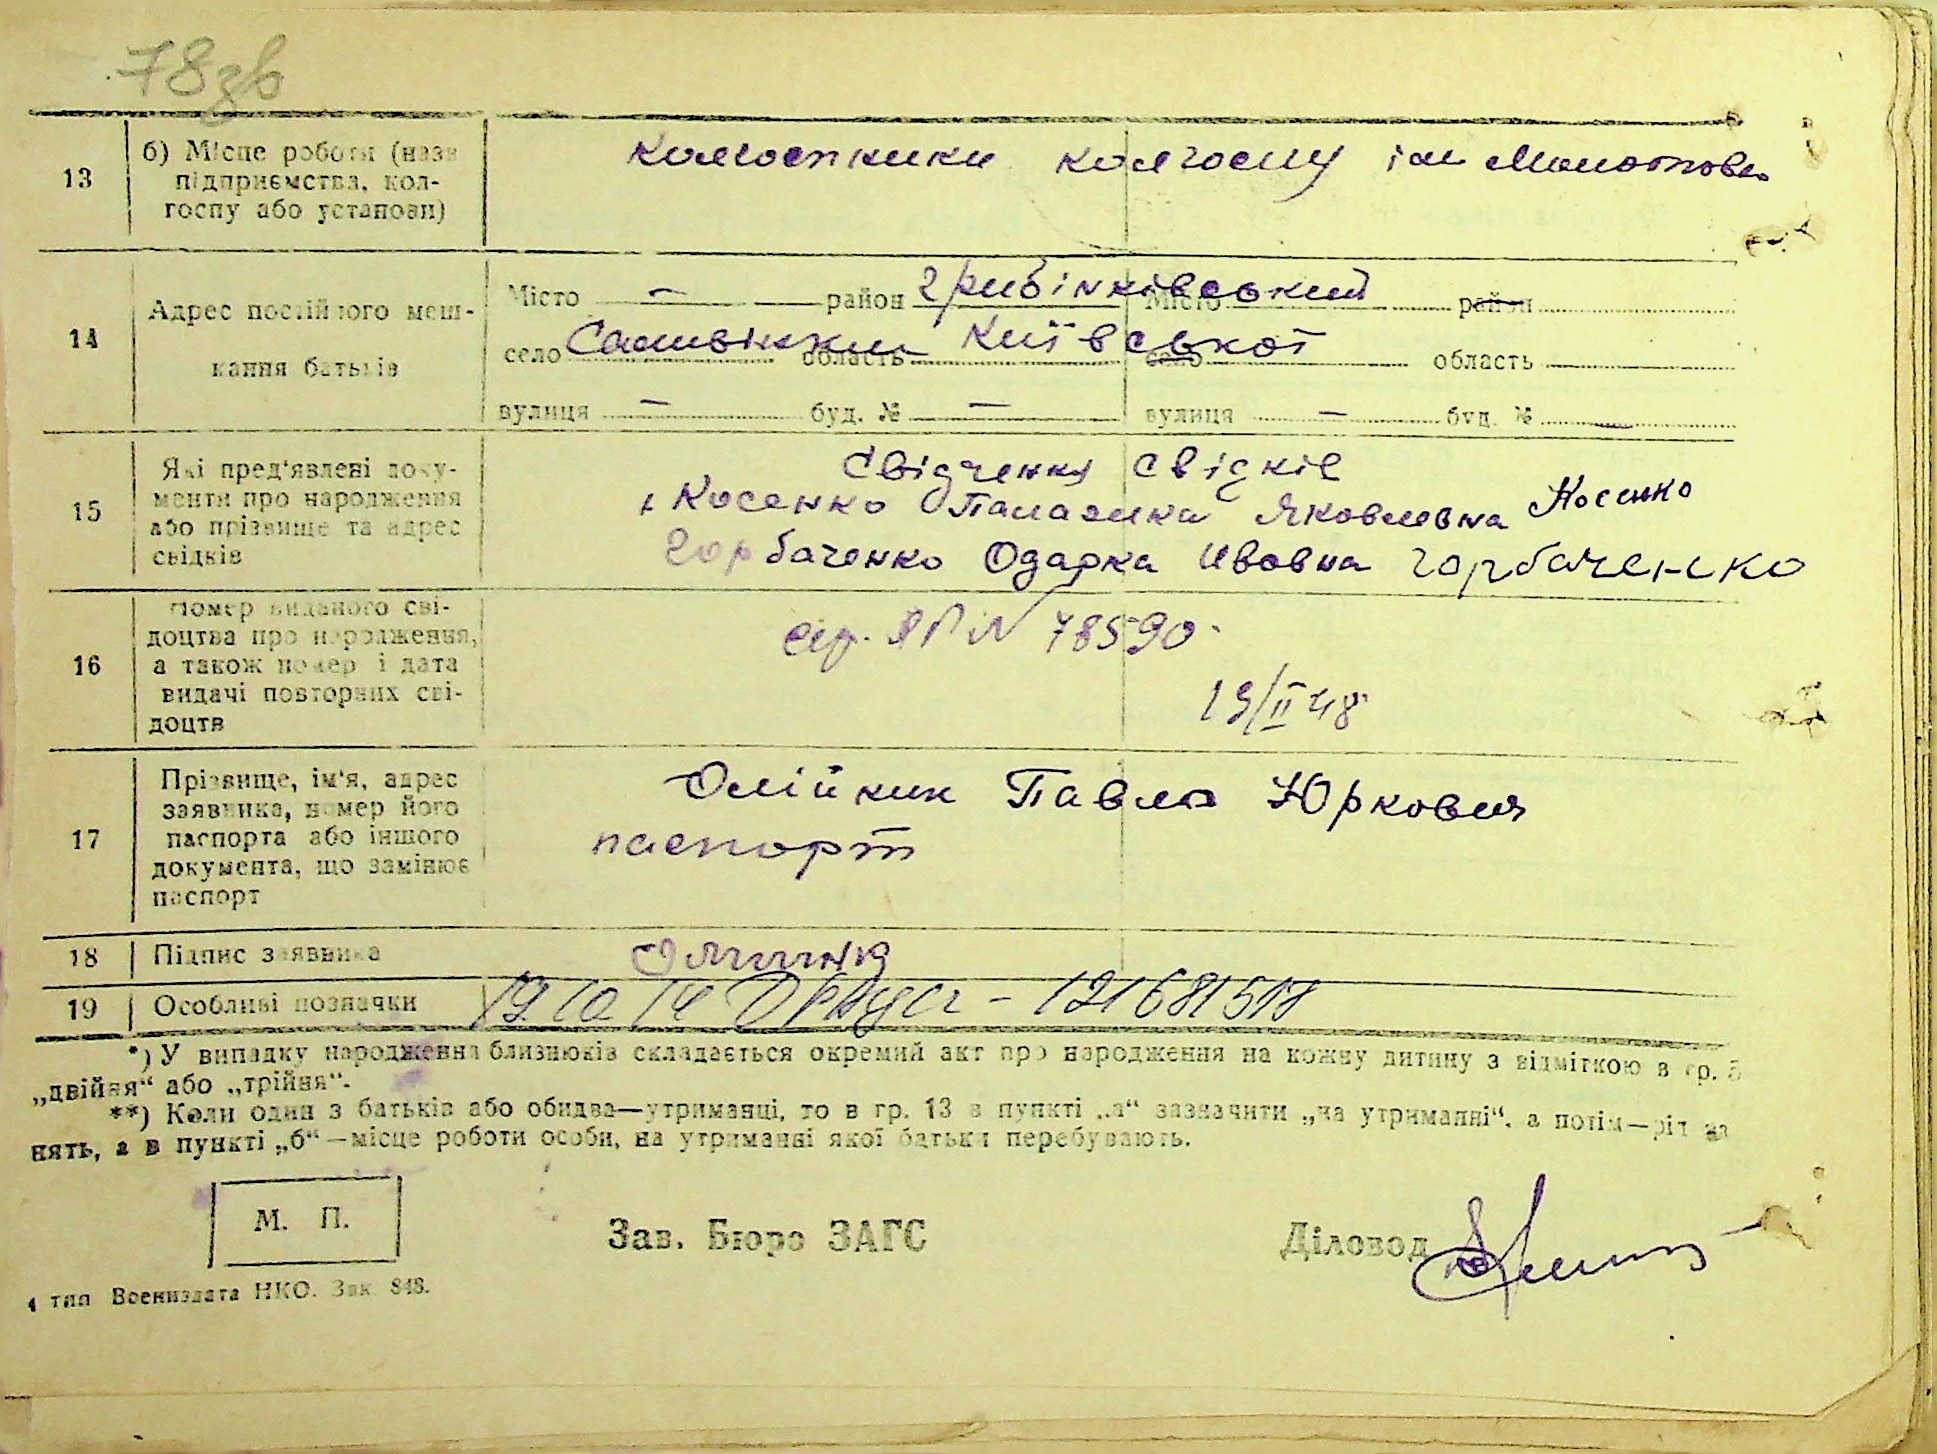 78зв
13 б) Місце роботи (назва підприємства, колгоспу або установи) колгоспники колгоспу ім Молотова
14 Адрес постійного мешкання батьків
Місто — район Гребінківський Місто район
село Саливінки область Київської село область
вулиця — буд. № — вулиця — буд. №
15 Які пред'явлені документи про народження або прізвище та адрес свідків
Свідчення свідків
Косенко Палажка Яковлевна Косенко
Горбаченко Одарка Ивовна Горбаченко
16 Номер виданого свідоцтва про народження, а також номер і дата видачі повторних свідоцтв
сер. ЯП N 78590
19/II 48
17 Прізвище, ім'я, адрес заявника, номер його паспорта або іншого документа, що замінює паспорт
Олійник Павло Юркович
паспорт
18 Підпис заявника
19 Особливі позначки 121681518
*) У випадку народження близнюків складається окремий акт про народження на кожну дитину з відміткою в гр. 5
„двійня“ або „трійня“.
**) Коли один з батьків або обидва—утриманці, то в гр. 13 в пункті „а“ зазначити „на утриманні“, а потім—рід за
нять, а в пункті „б“—місце роботи особи, на утриманні якої батьки перебувають.
М. П.
Зав. Бюро ЗАГС Діловод
4 тип Воениздата НКО. Зак. 848.